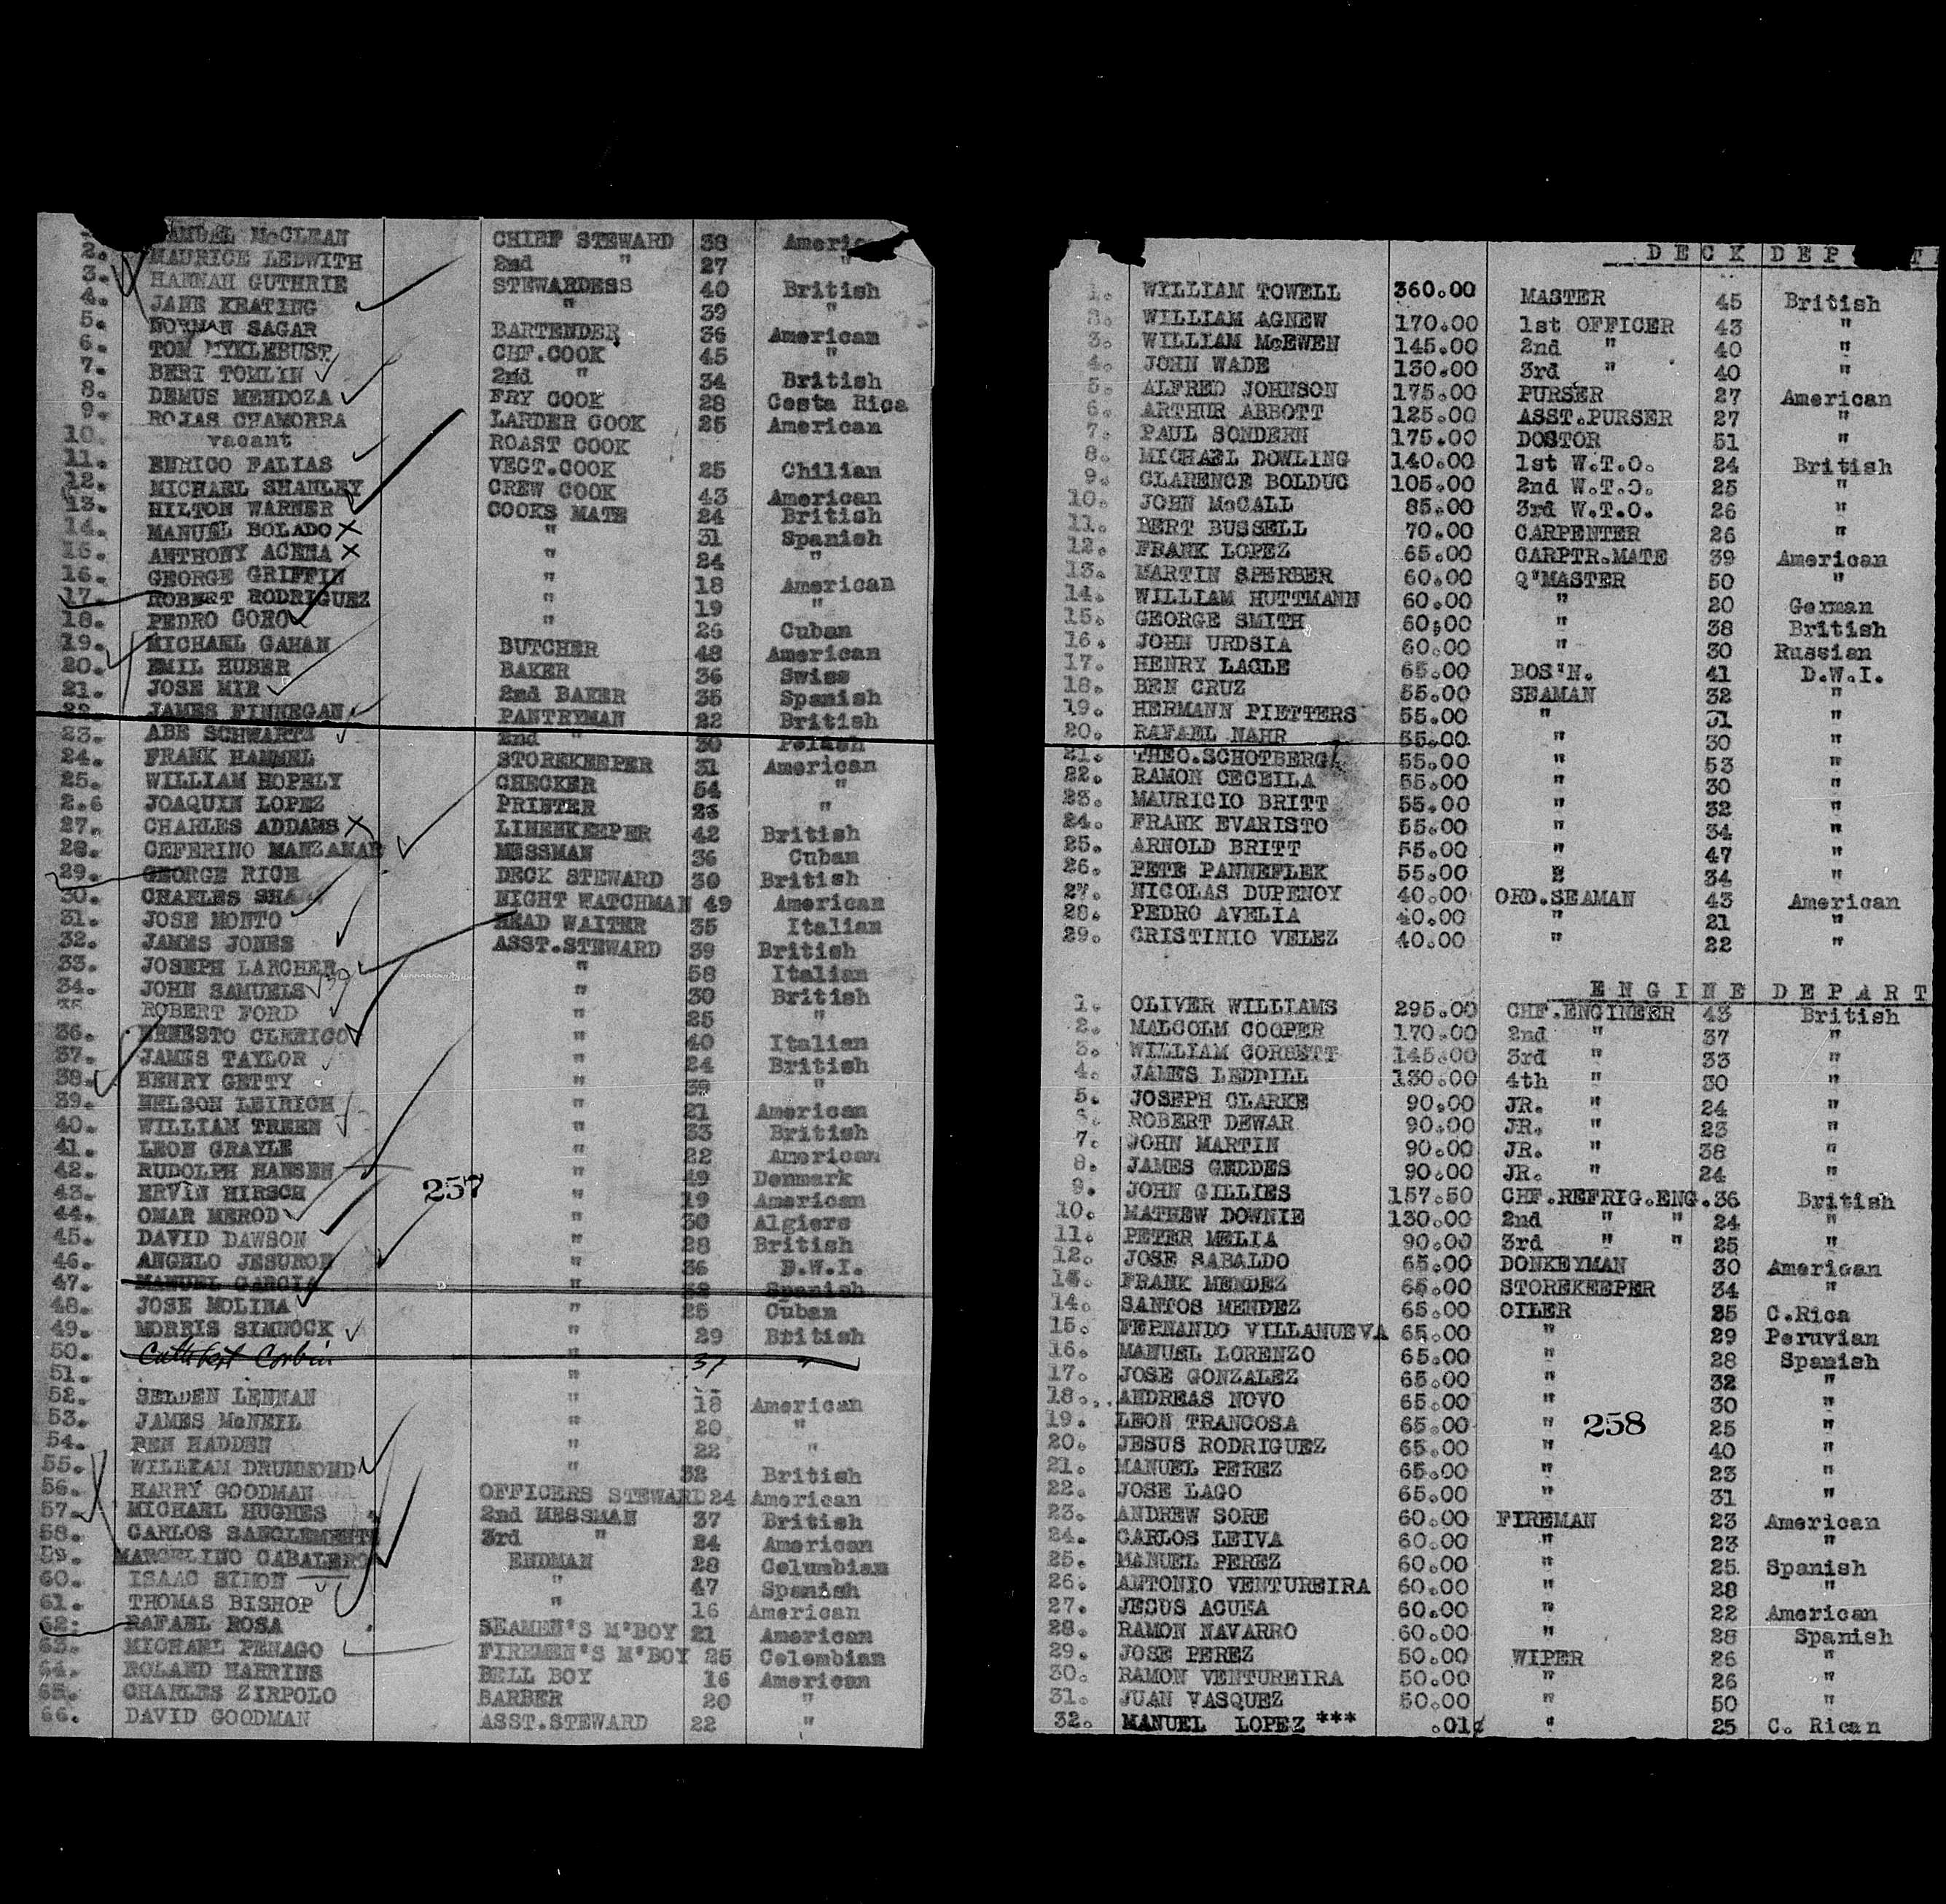 McCLEAN CHIEF STEWARD 38
2. MAURICE LEDWITH 2nd " 27 "
3. HANNAH GUTHRIE STEWARDESS 40 British
4. JANE KEATING " 39 "
5. NORMAN SAGAR BARTENDER 36 American
6. TOM MYKLEBUST CHF.COOK 45 "
7. BERT TOMLIN 2nd " 34 British
8. DEMUS MENDOZA FRY COOK 28 Costa Rica
9. ROJAS CHAMORRA LARDER COOK 25 American
10. vacant ROAST COOK
11. ENRICO FALIAS VEGT.COOK 25 Chilian
12. MICHAEL SHANLEY CREW COOK 43 American
13. HILTON WARNER COOKS MATE 24 British
14. MANUEL BOLADO " 31 Spanish
15. ANTHONY ACENA " 24 "
16. GEORGE GRIFFIN " 18 American
17. ROBERT RODRIGUEZ " 19 "
18. PEDRO CORO " 26 Cuban
19. MICHAEL GAHAN BUTCHER 48 American
20. EMIL HUBER BAKER 36 Swiss
21. JOSE MIR 2nd BAKER 35 Spanish
22. JAMES FINNEGAN PANTRYMAN 22 British
23. ABE SCHWARTZ 2nd " 30 Polish
24. FRANK HAMMEL STOREKEEPER 31 American
25. WILLIAM HOPELY CHECKER 54 "
2.6 JOAQUIN LOPEZ PRINTER 23 "
27. CHARLES ADDAMS LINENKEEPER 42 British
28. CEFERINO MANZANAR MESSMAN 36 Cuban
29. GEORGE RICH DECK STEWARD 30 British
30. CHARLES SHAW NIGHT WATCHMAN 49 American
31. JOSE MONTO HEAD WAITER 35 Italian
32. JAMES JONES ASST.STEWARD 39 British
33. JOSEPH LARCHER " 58 Italian
34. JOHN SAMUELS " 30 British
35 ROBERT FORD " 25 "
36. ERNESTO CLERICO " 40 Italian
37. JAMES TAYLOR " 24 British
38. HENRY GETTY " 39 "
39. NELSON LEIRICH " 21 American
40. WILLIAM TREEN " 33 British
41. LEON GRAYLE " 22 American
42. RUDOLPH HANSEN " 49 Denmark
43. ERVIN HIRSCH " 19 American
257
44. OMAR MEROD " 30 Algiers
45. DAVID DAWSON " 28 British
46. ANGELO JESURON " 36 D.W.I.
47. MANUEL GARCIA " Spanish
48. JOSE MOLINA " 25 Cuban
49. MORRIS SIMNOCK " 29 British
50. Cuthbert Corbin " 37 "
51. "
52. SELDEN LENNAN " 18 American
53. JAMES McNEIL " 20 "
54. BEN HADDEN " 22 "
55. WILLIAM DRUMMOND " 32 British
56. HARRY GOODMAN OFFICERS STEWARD 24 American
57. MICHAEL HUGHES 2nd MESSMAN 37 British
58. CARLOS SANCLEMENTE 3rd " 24 American
59. MARCELINO CABALERO ENDMAN 28 Columbian
60. ISAAC SIMON " 47 Spanish
61. THOMAS BISHOP " 16 American
62. RAFAEL ROSA SEAMEN'S M'BOY 21 American
63. MICHAEL PENAGO FIREMEN'S M'BOY 25 Colombian
64. ROLAND HARRINS BELL BOY 16 American
65. CHARLES ZIRPOLO BARBER 20 "
66. DAVID GOODMAN ASST.STEWARD 22 "
DECK DEP
1. WILLIAM TOWELL 360.00 MASTER 45 British
2. WILLIAM AGNEW 170.00 1st OFFICER 43 "
3. WILLIAM McEWEN 145.00 2nd " 40 "
4. JOHN WADE 130.00 3rd " 40 "
5. ALFRED JOHNSON 175.00 PURSER 27 American
6. ARTHUR ABBOTT 125.00 ASST.PURSER 27 "
7. PAUL SONDERN 175.00 DOSTOR 51 "
8. MICHAEL DOWLING 140.00 1st W.T.O. 24 British
9. CLARENCE BOLDUC 105.00 2nd W.T.O. 25 "
10. JOHN McCALL 85.00 3rd W.T.O. 26 "
11. BERT BUSSELL 70.00 CARPENTER 26 "
12. FRANK LOPEZ 65.00 CARPTR.MATE 39 American
13. MARTIN SPERBER 60.00 Q"MASTER 50 "
14. WILLIAM HUTTMANN 60.00 " 20 German
15. GEORGE SMITH 60.00 " 38 British
16. JOHN URDSIA 60.00 " 30 Russian
17. HENRY LAGLE 65.00 BOS'N. 41 D.W.I.
18. BEN CRUZ 55.00 SEAMAN 32 "
19. HERMANN PIETTERS 55.00 " 31 "
20. RAFAEL NAHR 55.00 " 30 "
21. THEO.SCHOTBERG 55.00 " 53 "
22. RAMON CECEILA 55.00 " 30 "
23. MAURICIO BRITT 55.00 " 32 "
24. FRANK EVARISTO 55.00 " 34 "
25. ARNOLD BRITT 55.00 " 47 "
26. PETE PANNEFLEK 55.00 " 34 "
27. NICOLAS DUPENOY 40.00 ORD.SEAMAN 43 American
28. PEDRO AVELIA 40.00 " 21 "
29. CRISTINIO VELEZ 40.00 " 22 "
ENGINE DEPART
1. OLIVER WILLIAMS 295.00 CHF.ENGINEER 43 British
2. MALCOLM COOPER 170.00 2nd " 37 "
3. WILLIAM CORBETT 145.00 3rd " 33 "
4. JAMES LEDDILL 130.00 4th " 30 "
5. JOSEPH CLARKE 90.00 JR. " 24 "
6. ROBERT DEWAR 90.00 JR. " 23 "
7. JOHN MARTIN 90.00 JR. " 38 "
8. JAMES GEDDES 90.00 JR. " 24 "
9. JOHN GILLIES 157.50 CHF.REFRIG.ENG. 36 British
10. MATHEW DOWNIE 130.00 2nd " " 24 "
11. PETER MELIA 90.00 3rd " " 25 "
12. JOSE SABALDO 65.00 DONKEYMAN 30 American
13. FRANK MENDEZ 65.00 STOREKEEPER 34 "
14. SANTOS MENDEZ 65.00 OILER 25 C.Rica
15. FERNANDO VILLANUEVA 65.00 " 29 Peruvian
16. MANUEL LORENZO 65.00 " 28 Spanish
17. JOSE GONZALEZ 65.00 " 32 "
18... ANDREAS NOVO 65.00 " 30 "
19. LEON TRANCOSA 65.00 " 25 "
258
20. JESUS RODRIGUEZ 65.00 " 40 "
21. MANUEL PEREZ 65.00 " 23 "
22. JOSE LAGO 65.00 " 31 "
23. ANDREW SORE 60.00 FIREMAN 23 American
24. CARLOS LEIVA 60.00 " 23 "
25. MANUEL PEREZ 60.00 " 25 Spanish
26. ANTONIO VENTUREIRA 60.00 " 28 "
27. JESUS ACUNA 60.00 " 22 American
28. RAMON NAVARRO 60.00 " 28 Spanish
29. JOSE PEREZ 50.00 WIPER 26 "
30. RAMON VENTUREIRA 50.00 " 26 "
31. JUAN VASQUEZ 50.00 " 50 "
32. MANUEL LOPEZ *** .01¢ " 25 C. Rican